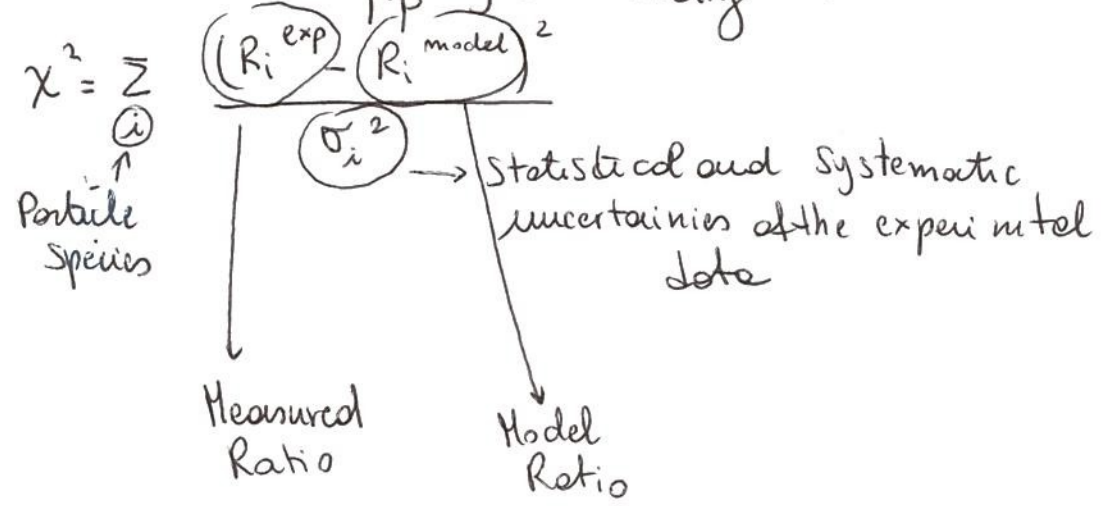 χ² = Σ (R_i^exp - R_i^model)² / σ_i²
i
Particle
Species
→ Statistical and Systematic
uncertainies of the experimtal
data
Measured
Ratio
Model
Ratio